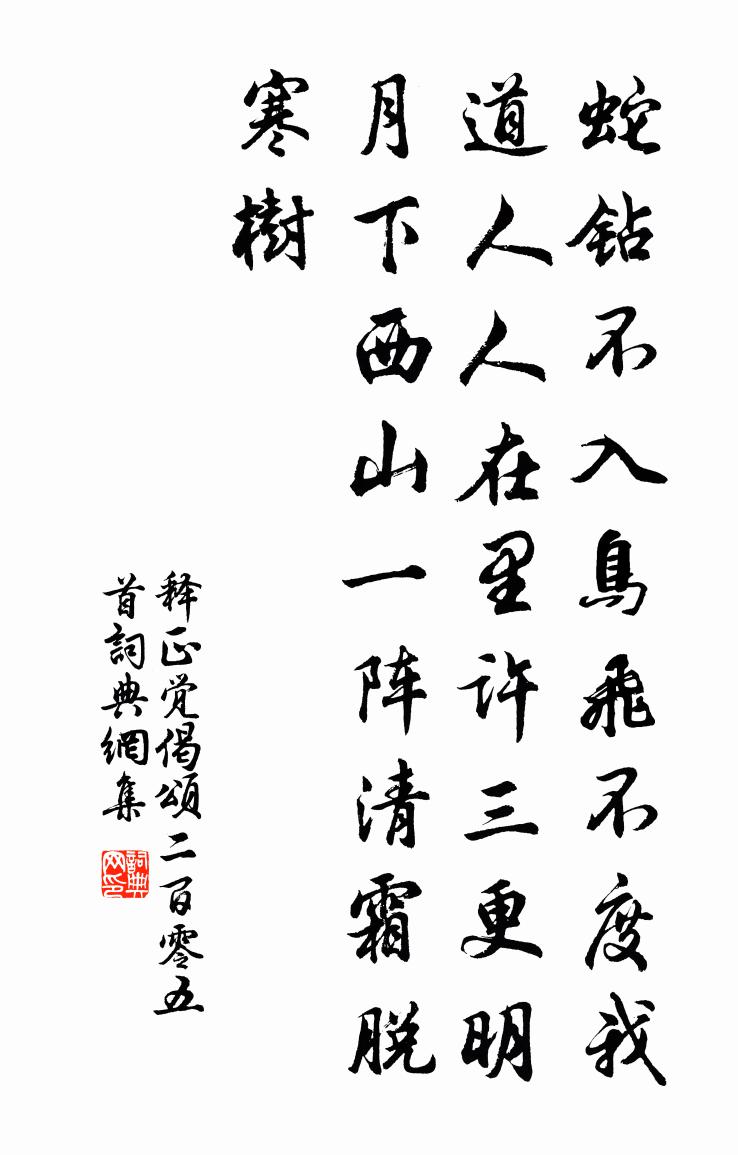 蛇钻不入鳥飛不度我
道人人在里许三更明
月下西山一阵清霜脱
寒樹
释正觉偈頌二百零五
首詞典網集
詞典
网印